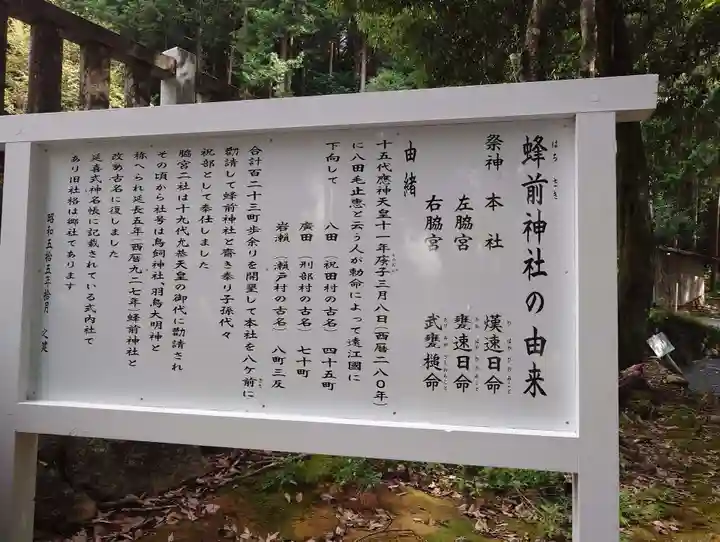 蜂前神社の由来
はち さき
祭神 本社 熯速日命
ひ はや ひ の みこと
左脇宮 甕速日命
みか はや ひ の みこと
右脇宮 武甕槌命
たけ みか づち の みこと
由緒
十五代應神天皇十一年庚子三月八日(西暦二八〇年)
に八田毛止恵と云う人が勅命によって遠江國に
下向して
八田 (祝田村の古名) 四十五町
廣田 (刑部村の古名) 七十町
岩瀬 (瀬戸村の古名) 八町三反
合計百二十三町歩余りを開墾して本社を八ケ前に
勸請して蜂前神社と齋き奉り子孫代々
祝部として奉仕しました
脇宮二社は十九代允恭天皇の御代に勸請され
その頃から社号は鳥飼神社、羽鳥大明神と
称へられ延長五年(西暦九二七年)蜂前神社と
改め古名に復しました
延喜式神名帳に記載されている式内社で
あり旧社格は郷社であります
昭和五拾五年拾月 之建